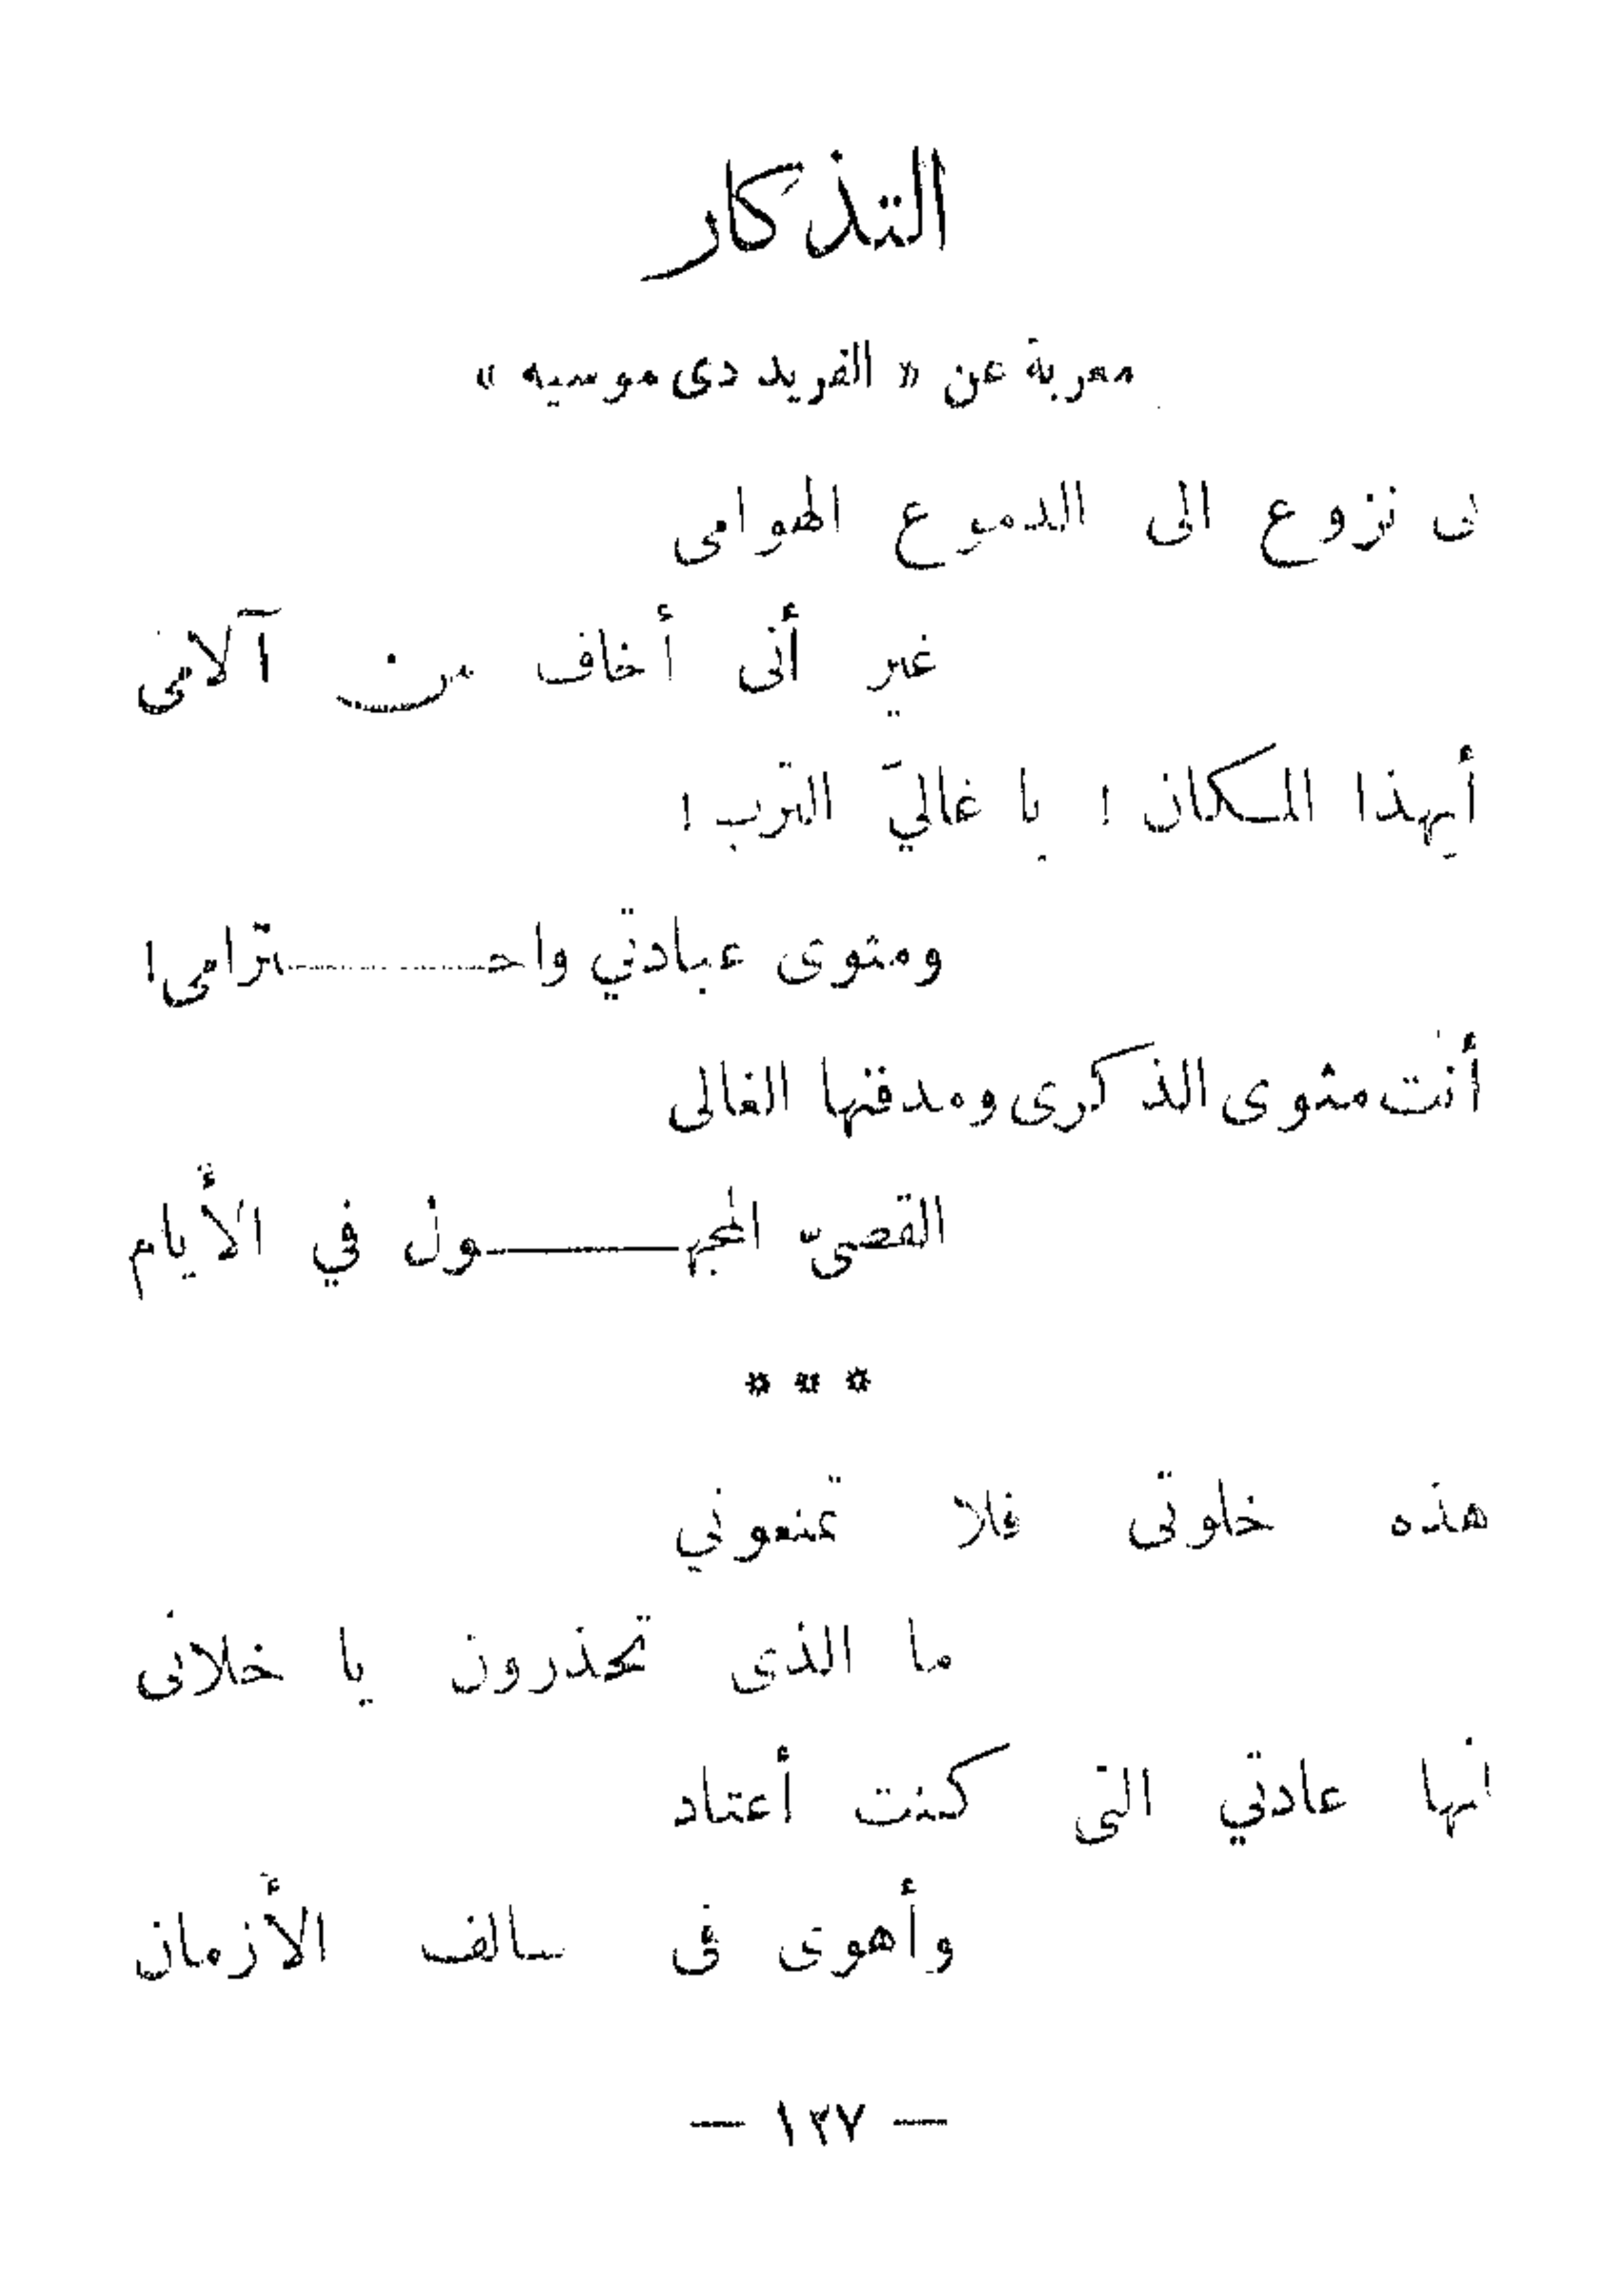 التذكار
معربة عن « الفريد دى موسيه »
لى نزوع الى الدموع الهوامى
غير أنى أخاف من آلامى
أيهذا المكان ! يا غاليَ الترب !
ومثوى عبادتي واحـــترامى !
أنت مثوى الذكرى ومدفنها الغالى
القصىّ المجهـــول في الأيام
* * *
هذه خلوتى فلا تمنعوني
ما الذى تحذرون يا خلانى
انها عادتي التى كنت أعتاد
وأهوى فى سالف الأزمان
— ١٢٧ —